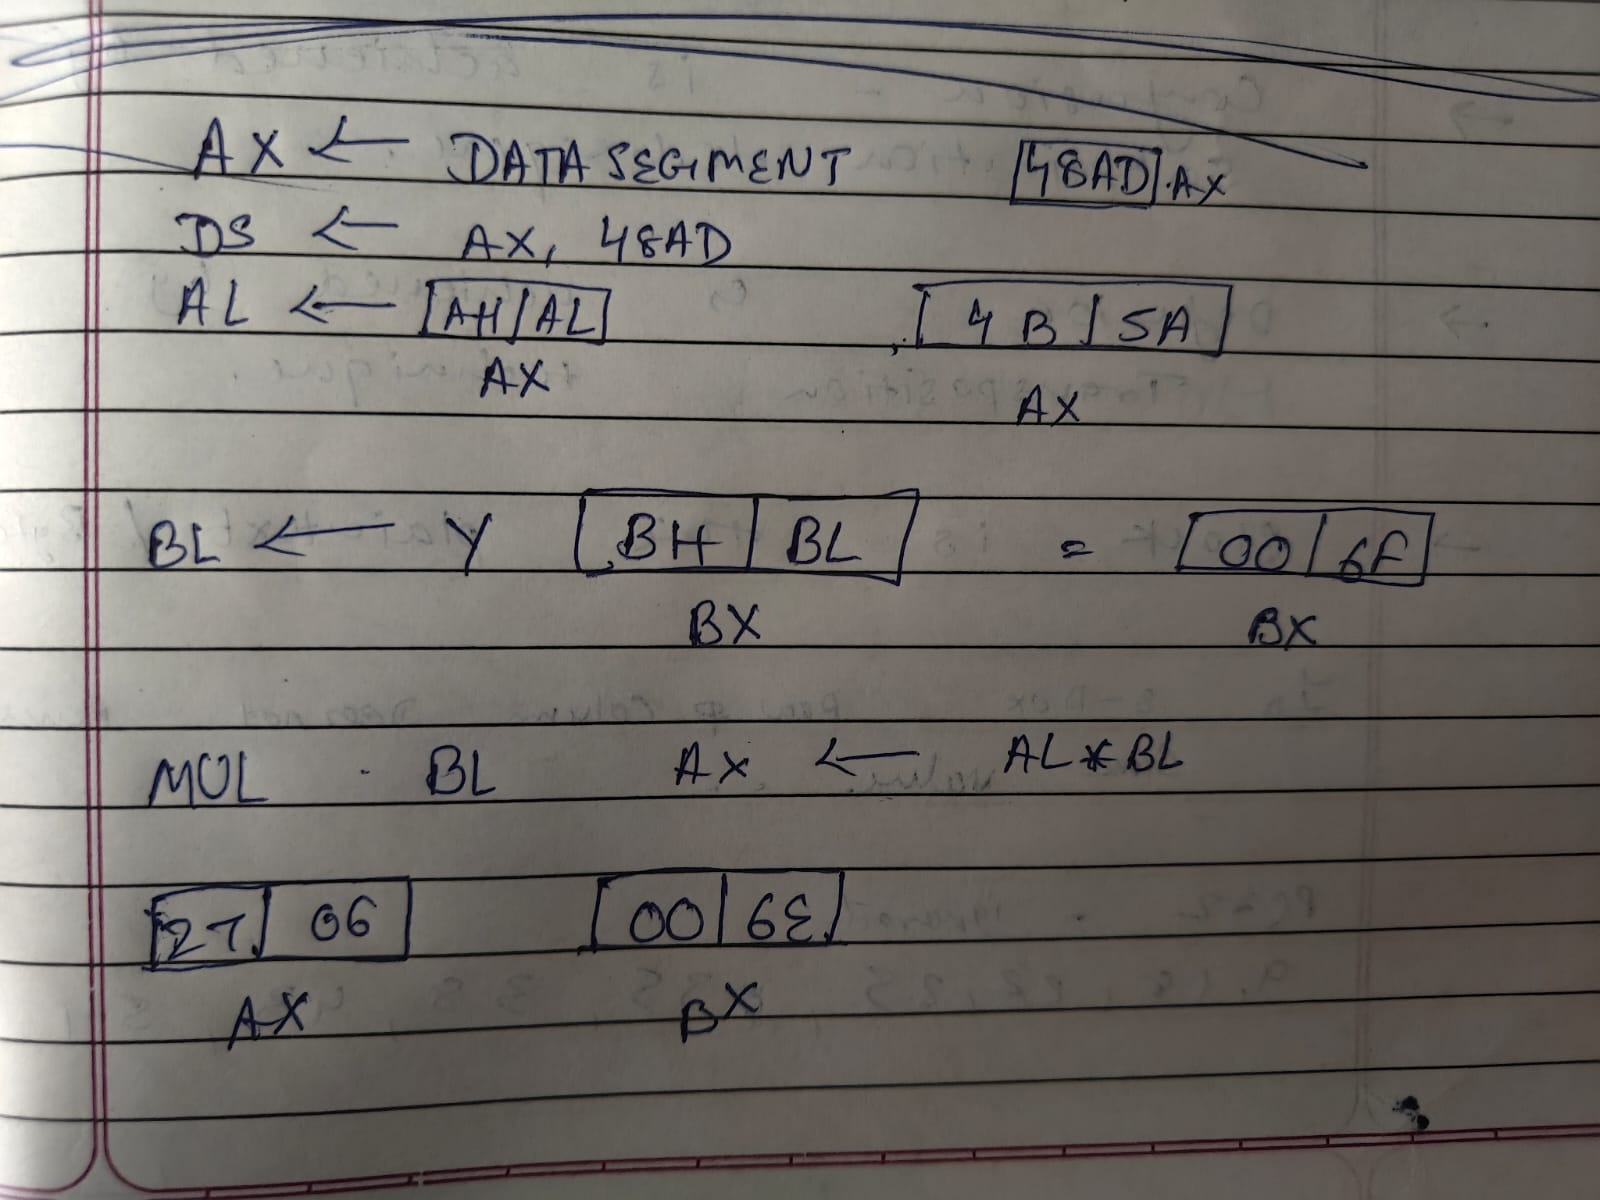 AX ← DATA SEGMENT 48AD AX
DS ← AX, 48AD
AL ← AH | AL 4B | 5A
AX AX
BL ← Y BH | BL = 00 | 6F
BX BX
MUL BL AX ← AL * BL
27 | 06 00 | 6E
AX BX